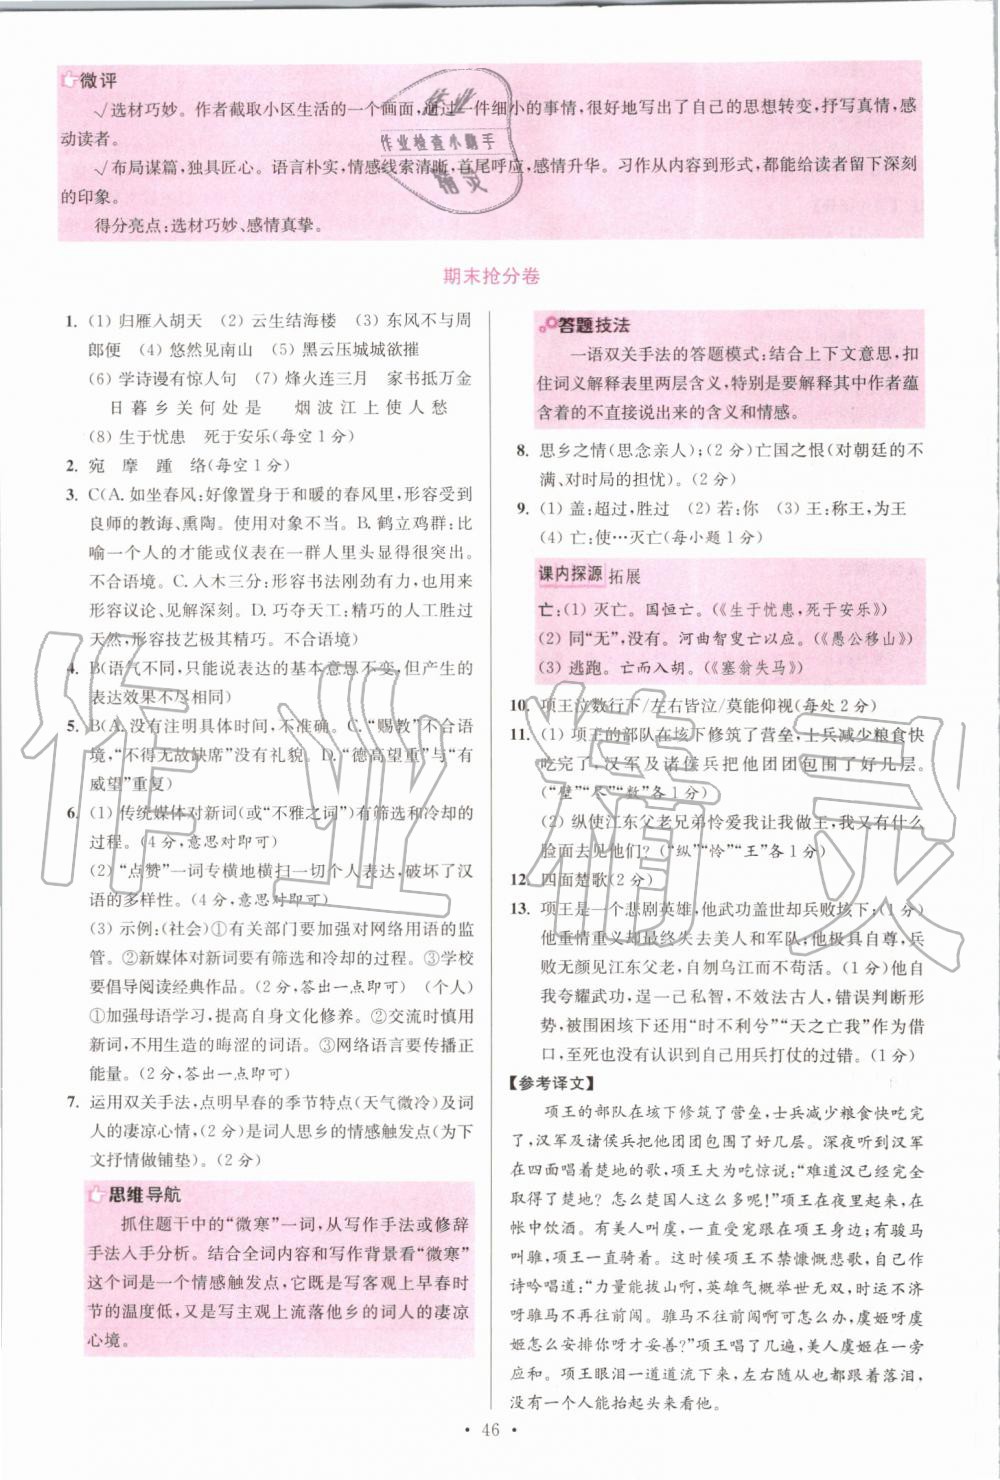 微评
√选材巧妙。作者截取小区生活的一个画面,通过一件细小的事情,很好地写出了自己的思想转变,抒写真情,感
动读者。
√布局谋篇,独具匠心。语言朴实,情感线索清晰,首尾呼应,感情升华。习作从内容到形式,都能给读者留下深刻
的印象。
得分亮点:选材巧妙、感情真挚。
作业
作业检查小助手
精灵
期末抢分卷
1. (1) 归雁入胡天 (2) 云生结海楼 (3) 东风不与周
郎便 (4) 悠然见南山 (5) 黑云压城城欲摧
(6) 学诗谩有惊人句 (7) 烽火连三月 家书抵万金
日暮乡关何处是 烟波江上使人愁
(8) 生于忧患 死于安乐(每空1分)
2. 宛 摩 踵 络(每空1分)
3. C(A. 如坐春风:好像置身于和暖的春风里,形容受到
良师的教诲、熏陶。使用对象不当。B. 鹤立鸡群:比
喻一个人的才能或仪表在一群人里头显得很突出。
不合语境。C. 入木三分:形容书法刚劲有力,也用来
形容议论、见解深刻。D. 巧夺天工:精巧的人工胜过
天然,形容技艺极其精巧。不合语境)
4. B(语气不同,只能说表达的基本意思不变,但产生的
表达效果不尽相同)
5. B(A. 没有注明具体时间,不准确。C.“赐教”不合语
境,“不得无故缺席”没有礼貌。D.“德高望重”与“有
威望”重复)
6. (1) 传统媒体对新词(或“不雅之词”)有筛选和冷却的
过程。(4分,意思对即可)
(2) “点赞”一词专横地横扫一切个人表达,破坏了汉
语的多样性。(4分,意思对即可)
(3) 示例:(社会)①有关部门要加强对网络用语的监
管。②新媒体对新词要有筛选和冷却的过程。③学校
要倡导阅读经典作品。(2分,答出一点即可) (个人)
①加强母语学习,提高自身文化修养。②交流时慎用
新词,不用生造的晦涩的词语。③网络语言要传播正
能量。(2分,答出一点即可)
7. 运用双关手法,点明早春的季节特点(天气微冷)及词
人的凄凉心情,(2分)是词人思乡的情感触发点(为下
文抒情做铺垫)。(2分)
思维导航
抓住题干中的“微寒”一词,从写作手法或修辞
手法入手分析。结合全词内容和写作背景看“微寒”
这个词是一个情感触发点,它既是写客观上早春时
节的温度低,又是写主观上流落他乡的词人的凄凉
心境。
答题技法
一语双关手法的答题模式:结合上下文意思,扣
住词义解释表里两层含义,特别是要解释其中作者蕴
含着的不直接说出来的含义和情感。
8. 思乡之情(思念亲人);(2分)亡国之恨(对朝廷的不
满、对时局的担忧)。(2分)
9. (1) 盖:超过,胜过 (2) 若:你 (3) 王:称王,为王
(4) 亡:使…灭亡(每小题1分)
课内探源 拓展
亡:(1) 灭亡。国恒亡。(《生于忧患,死于安乐》)
(2) 同“无”,没有。河曲智叟亡以应。(《愚公移山》)
(3) 逃跑。亡而入胡。(《塞翁失马》)
10. 项王泣数行下/左右皆泣/莫能仰视(每处2分)
11. (1) 项王的部队在垓下修筑了营垒,士兵减少粮食快
吃完了,汉军及诸侯兵把他团团包围了好几层。
(“壁”“尽”“数”各1分)
(2) 纵使江东父老兄弟怜爱我让我做王,我又有什么
脸面去见他们?(“纵”“怜”“王”各1分)
12. 四面楚歌(2分)
13. 项王是一个悲剧英雄,他武功盖世却兵败垓下;(1分)
他重情重义却最终失去美人和军队,他极具自尊,兵
败无颜见江东父老,自刎乌江而不苟活。(1分)他自
我夸耀武功,逞一己私智,不效法古人,错误判断形
势,被围困垓下还用“时不利兮”“天之亡我”作为借
口,至死也没有认识到自己用兵打仗的过错。(1分)
【参考译文】
项王的部队在垓下修筑了营垒,士兵减少粮食快吃完
了,汉军及诸侯兵把他团团包围了好几层。深夜听到汉军
在四面唱着楚地的歌,项王大为吃惊说:“难道汉已经完全
取得了楚地?怎么楚国人这么多呢!”项王在夜里起来,在
帐中饮酒。有美人叫虞,一直受宠跟在项王身边;有骏马
叫骓,项王一直骑着。这时候项王不禁慷慨悲歌,自己作
诗吟唱道:“力量能拔山啊,英雄气概举世无双,时运不济
呀骓马不再往前闯。骓马不往前闯啊可怎么办,虞姬呀虞
姬怎么安排你呀才妥善?”项王唱了几遍,美人虞姬在一旁
应和。项王眼泪一道道流下来,左右随从也都跟着落泪,
没有一个人能抬起头来看他。
· 46 ·
作业精灵